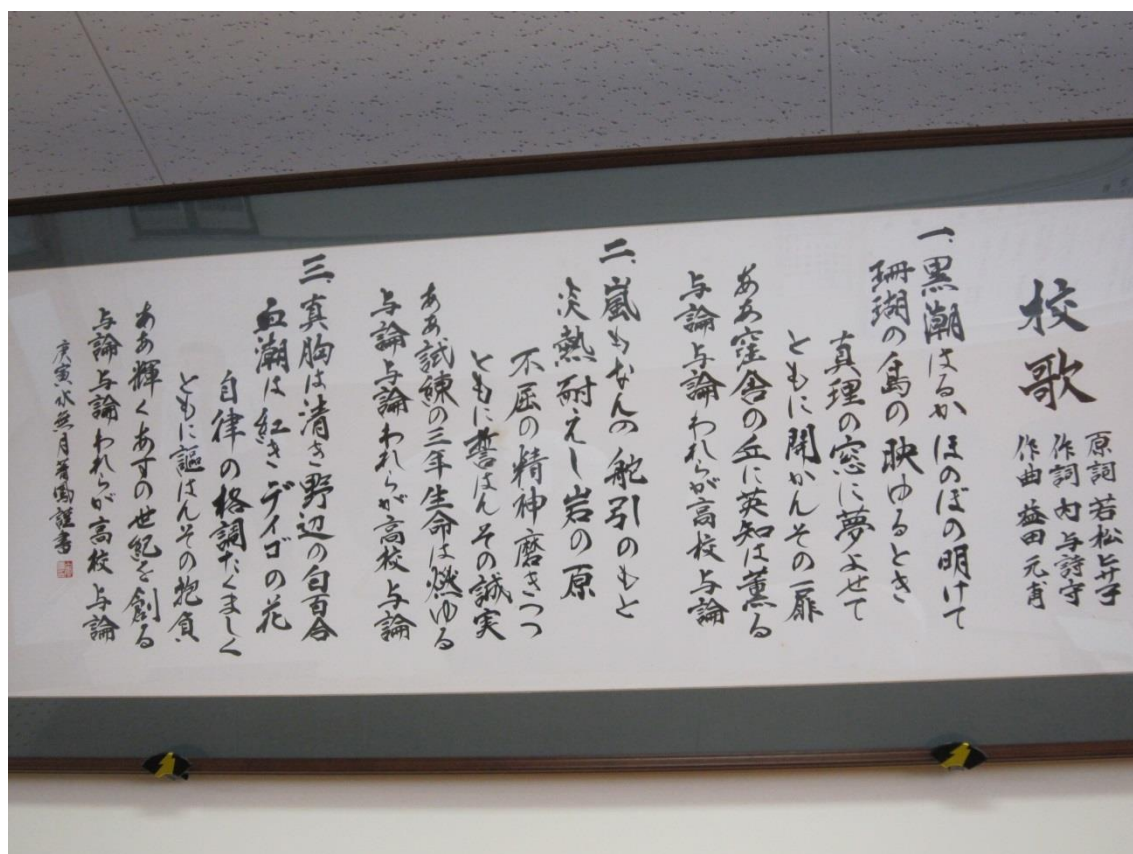 校歌
原詞 若松与升子
作詞 内与詩守
作曲 益田元甫
一、黒潮はるかほのぼの明けて
珊瑚の島の映ゆるとき
真理の窓に夢よせて
ともに開かんその扉
ああ窪舎の丘に英知は薫る
与論与論われらが高校与論
二、嵐もなんの舵引のもと
炎熱耐えし岩の原
不屈の精神磨きつつ
ともに誓はんその誠実
ああ試練の三年生命は燃ゆる
与論与論われらが高校与論
三、真胸は清き野辺の白百合
血潮は紅きデイゴの花
自律の格調たくましく
ともに謳はんその抱負
ああ輝くあすの世紀を創る
与論与論われらが高校与論
庚寅水無月 謹書